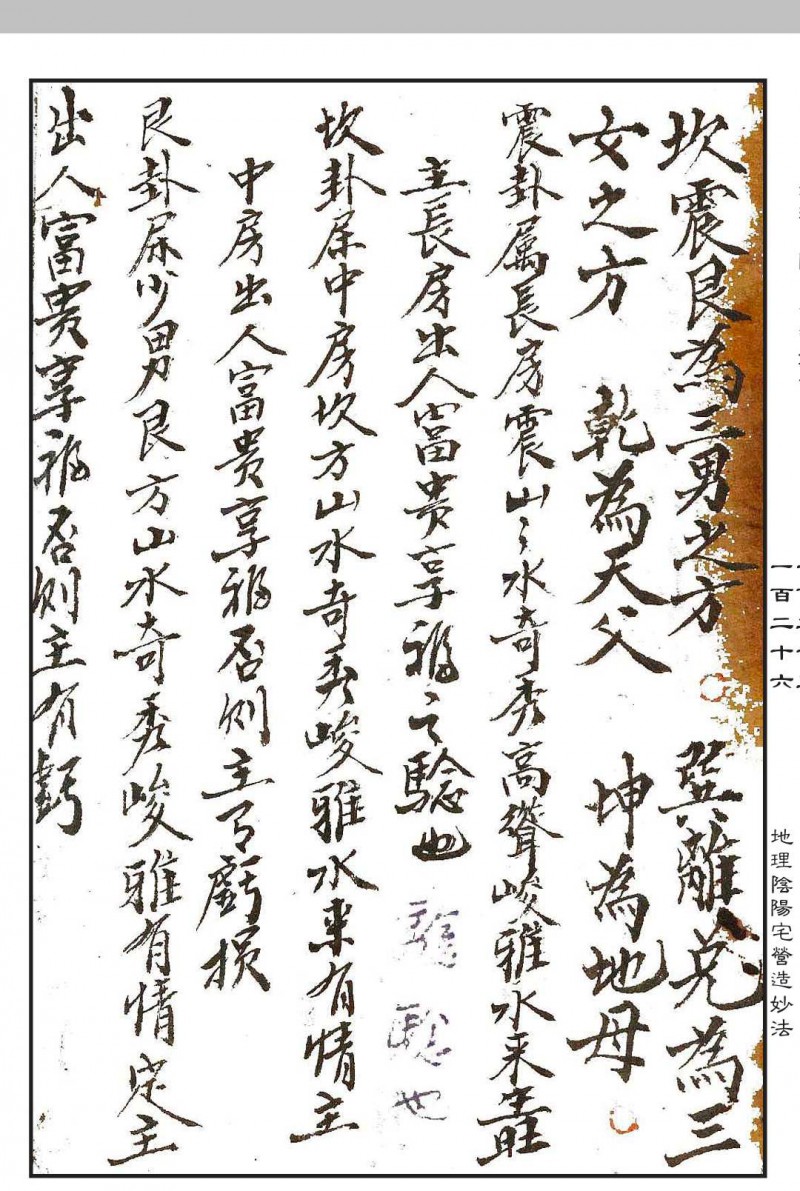 坎震艮為三男之方 巽離兌為三
女之方 乾為天父 坤為地母
震卦属長房震山々水奇秀高聳峻雅水来
主長房出人富貴享福之驗也 驗也
坎卦属中房坎方山水奇秀峻雅水来有情主
中房出人富貴享福否则主有虧损
艮卦属少男艮方山水奇秀峻雅有情定主
出人富貴享福否则主有虧
一百二十六
地理陰陽宅營造妙法